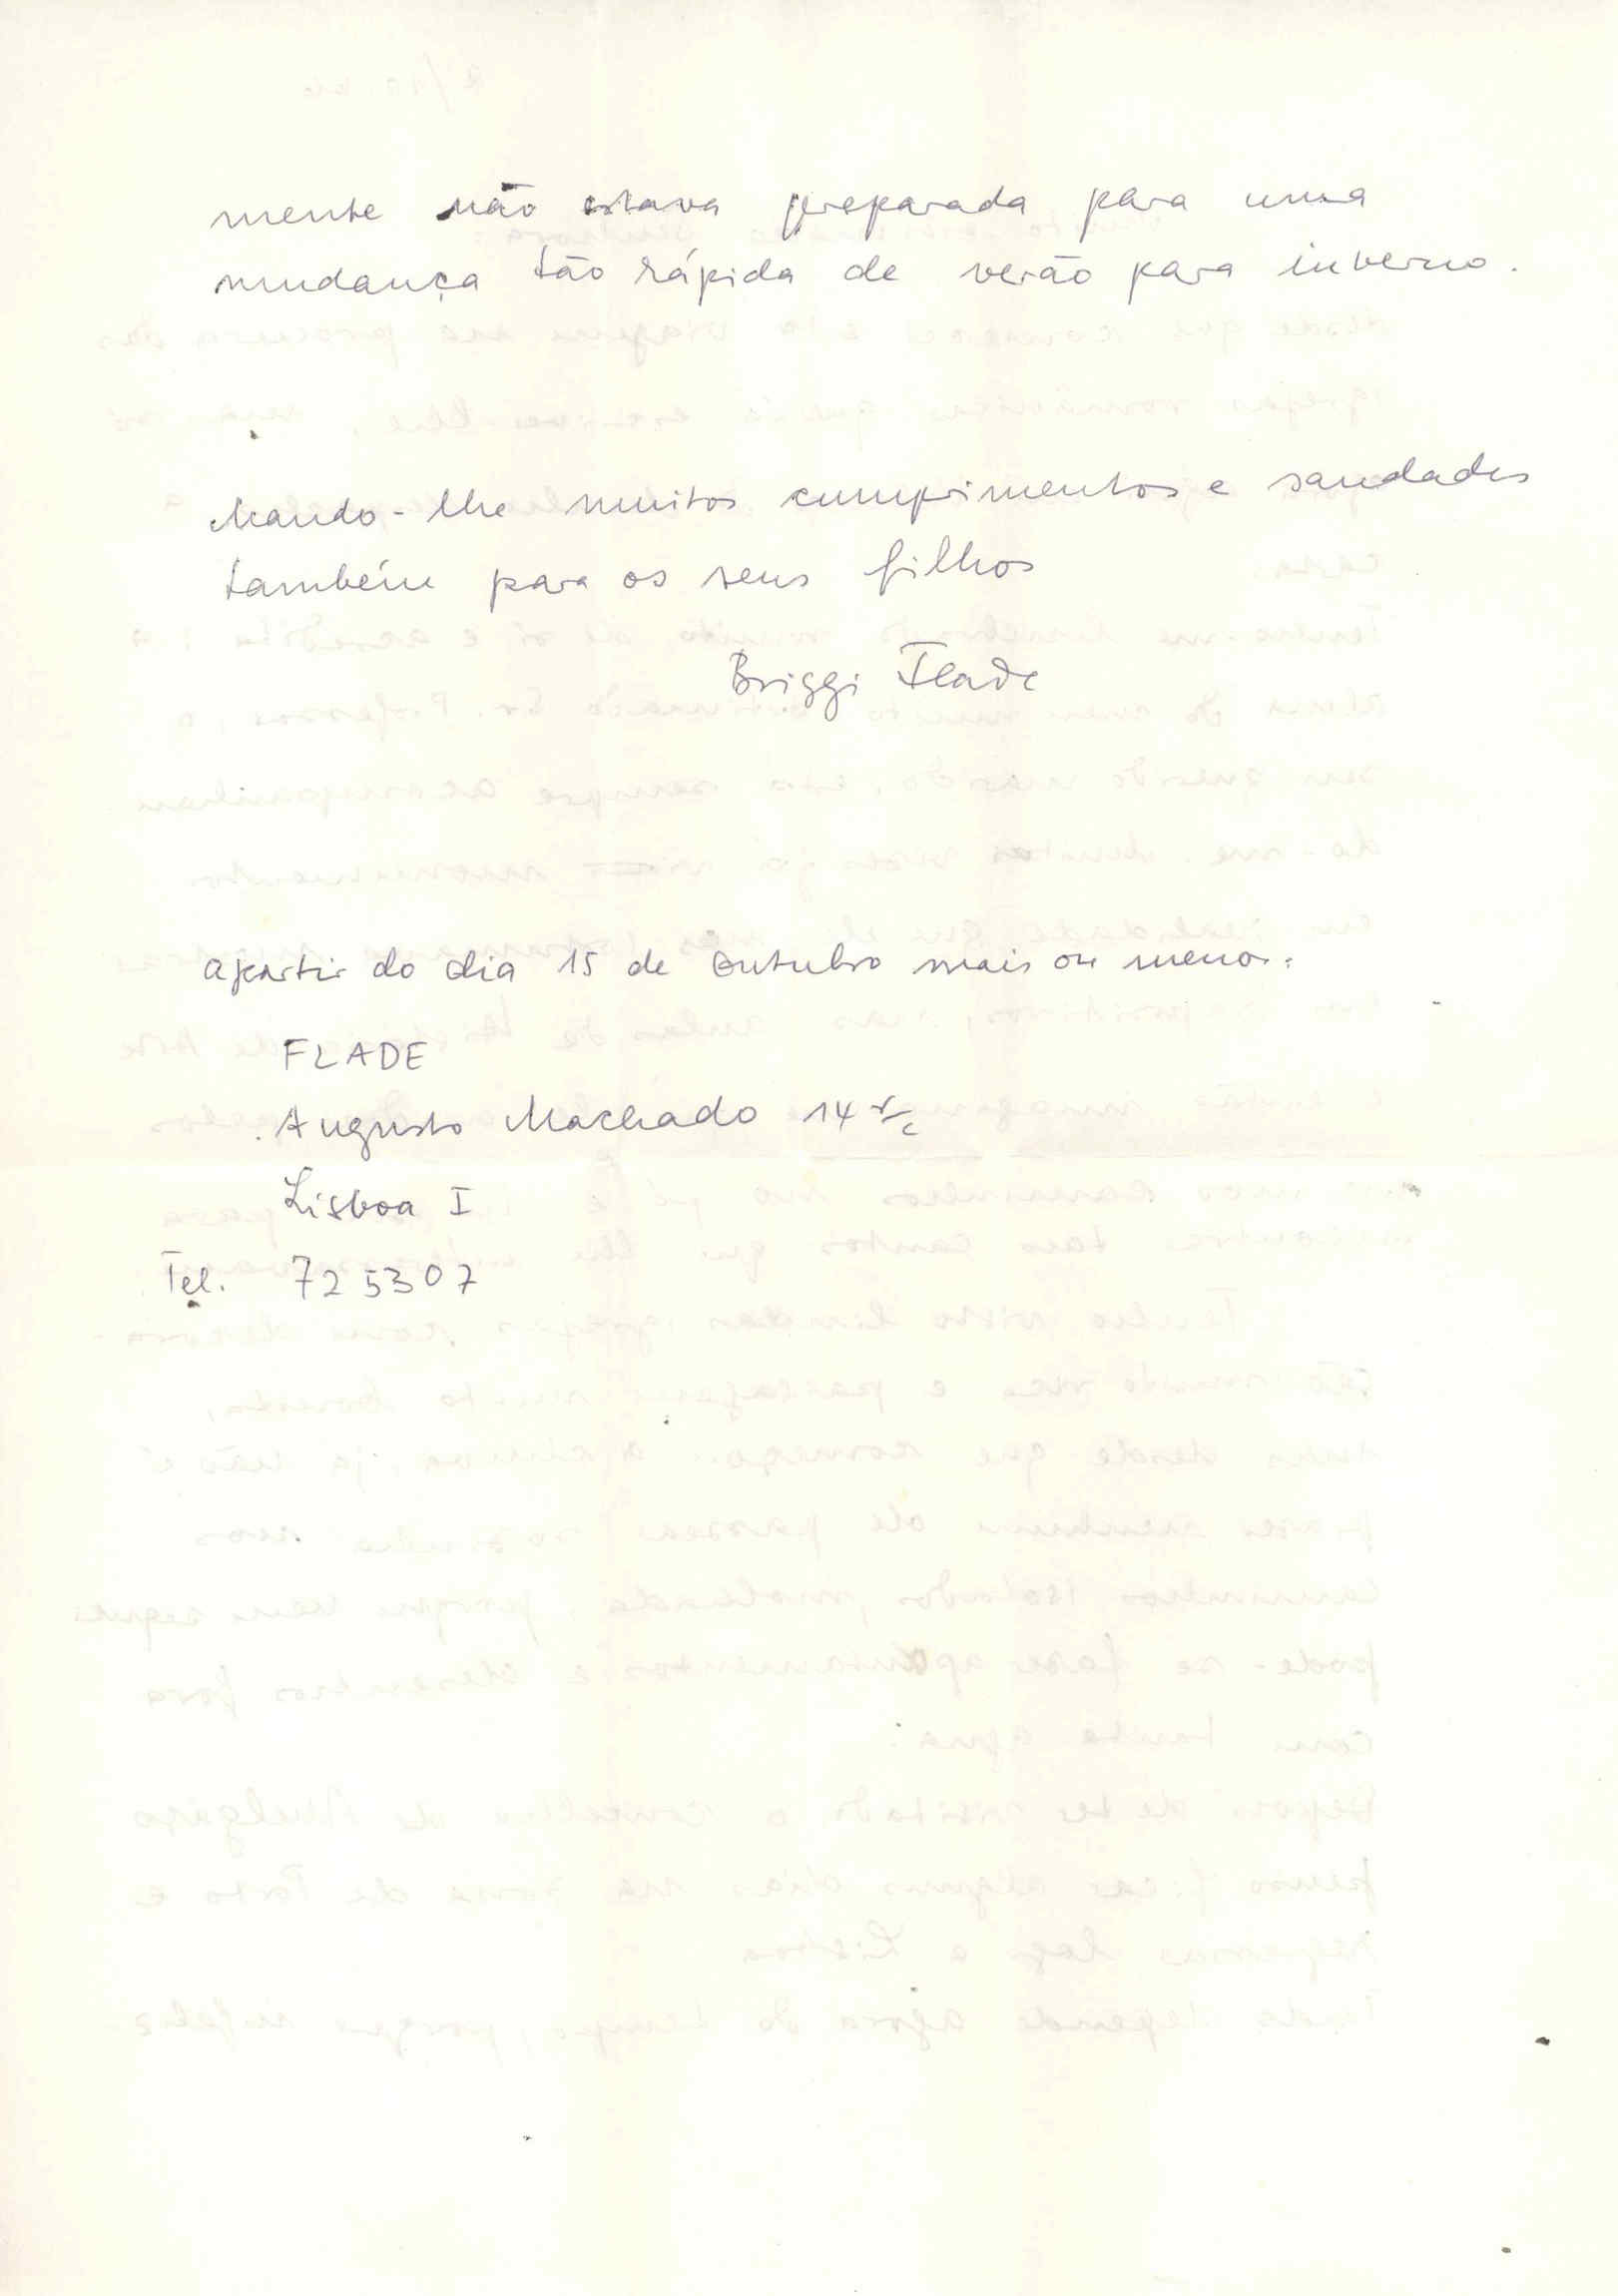 mente não estava preparada para uma
mudança tão rápida de verão para inverno.
Mando-lhe muitos cumprimentos e saudades
também para os seus filhos
Briggi Flade
apartir do dia 15 de outubro mais ou menos:
FLADE
Augusto Machado 14 r/c
Lisboa I
Tel. 725307